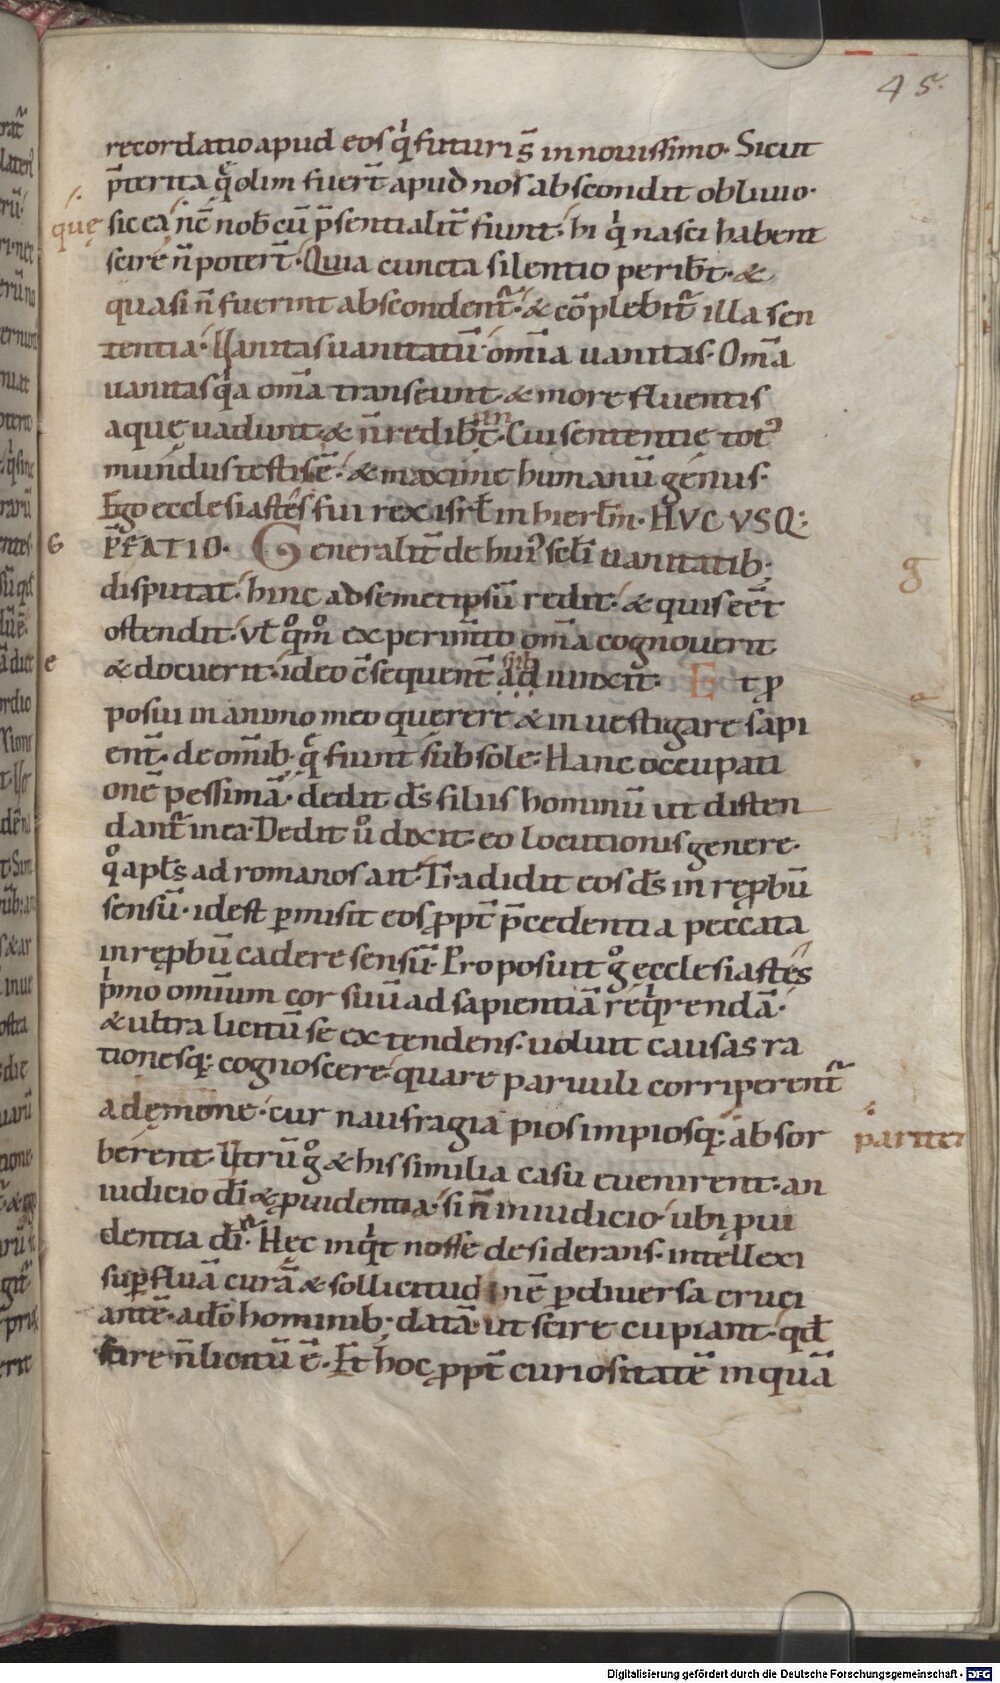 45.
recordatio apud eos q̇ futuri s̄ in nouissimo. Sicut
p̄terita q̄ olim fuer̄t apud nos abscondit obliuio.
quę sic ea nc̄ nob̄ cū p̄sentialit̄ fiunt. hi q̇ nasci habent
scire n̄ poter̄t. Quia cuncta silentio perib̄t. &
quasi n̄ fuerint abscondent̄. & cōplebit̄ illa sen
tentia. Uanitas uanitatū omīa uanitas. Om̄a
uanitas q̇a om̄a transeunt. & more fluentis
aquę uadunt. & n̄ redib̄t. Cui sententię tot᾽
mundus testis ē. & maxime humanū genus.
Ego ecclesiastes fui rex isrl̄ in hierl̄m. HVC VSQ:
G P̄FATIO. Generalit̄ de hui᾽ scl̄i uanitatib;
disputat. hinc ad semetipsū redit. & quis eēt
ostendit. ut̄ q̊m̊ experim̄to om̄a cognouerit
e & docuerit. ideo c̄sequent̄ ad iunxit. Et ꝓ
sub
posui in animo meo querere & inuestigare sapi
ent̄. de om̄ib. q̄ fiunt sub sole. Hanc occupati
onē pessimā. dedit d̄s filiis hominū ut disten
dant̄ in ea. Dedit ů dixit. eo locutionis genere.
q̊ apl̄s ad romanos ait. Tradidit eos d̄s in rępbū
sensū. id est ꝑmisit eos ꝓpt̄ p̄cedentia peccata
in rępbū cadere sensū. Proposuit g̊ ecclesiastes
p̍mo omīum cor suū ad sapientiā req̇rendā.
& ultra licitū se extendens. uoluit causas ra
tionesq; cognoscere. quare paruuli corriperent̄
a demone. cur naufragia pios impiosq; absor pariter
berent. Utrū g̊ & his similia casu euenirent. an
iudicio dī & ꝓuidentia. si n̄ in iudicio. ubi ꝓui
dentia dī. Hęc inq̇t nosse desiderans. intellexi
suꝑfluā curā & sollicitudinē ꝑ diuersa cruci
antē. a dō hominib. datā. ut scire cupiant. qd̄
scire n̄ licitū ē. Et hoc ꝓpt̄ curiositatē in quā
g
Digitalisierung gefördert durch die Deutsche Forschungsgemeinschaft - DFG